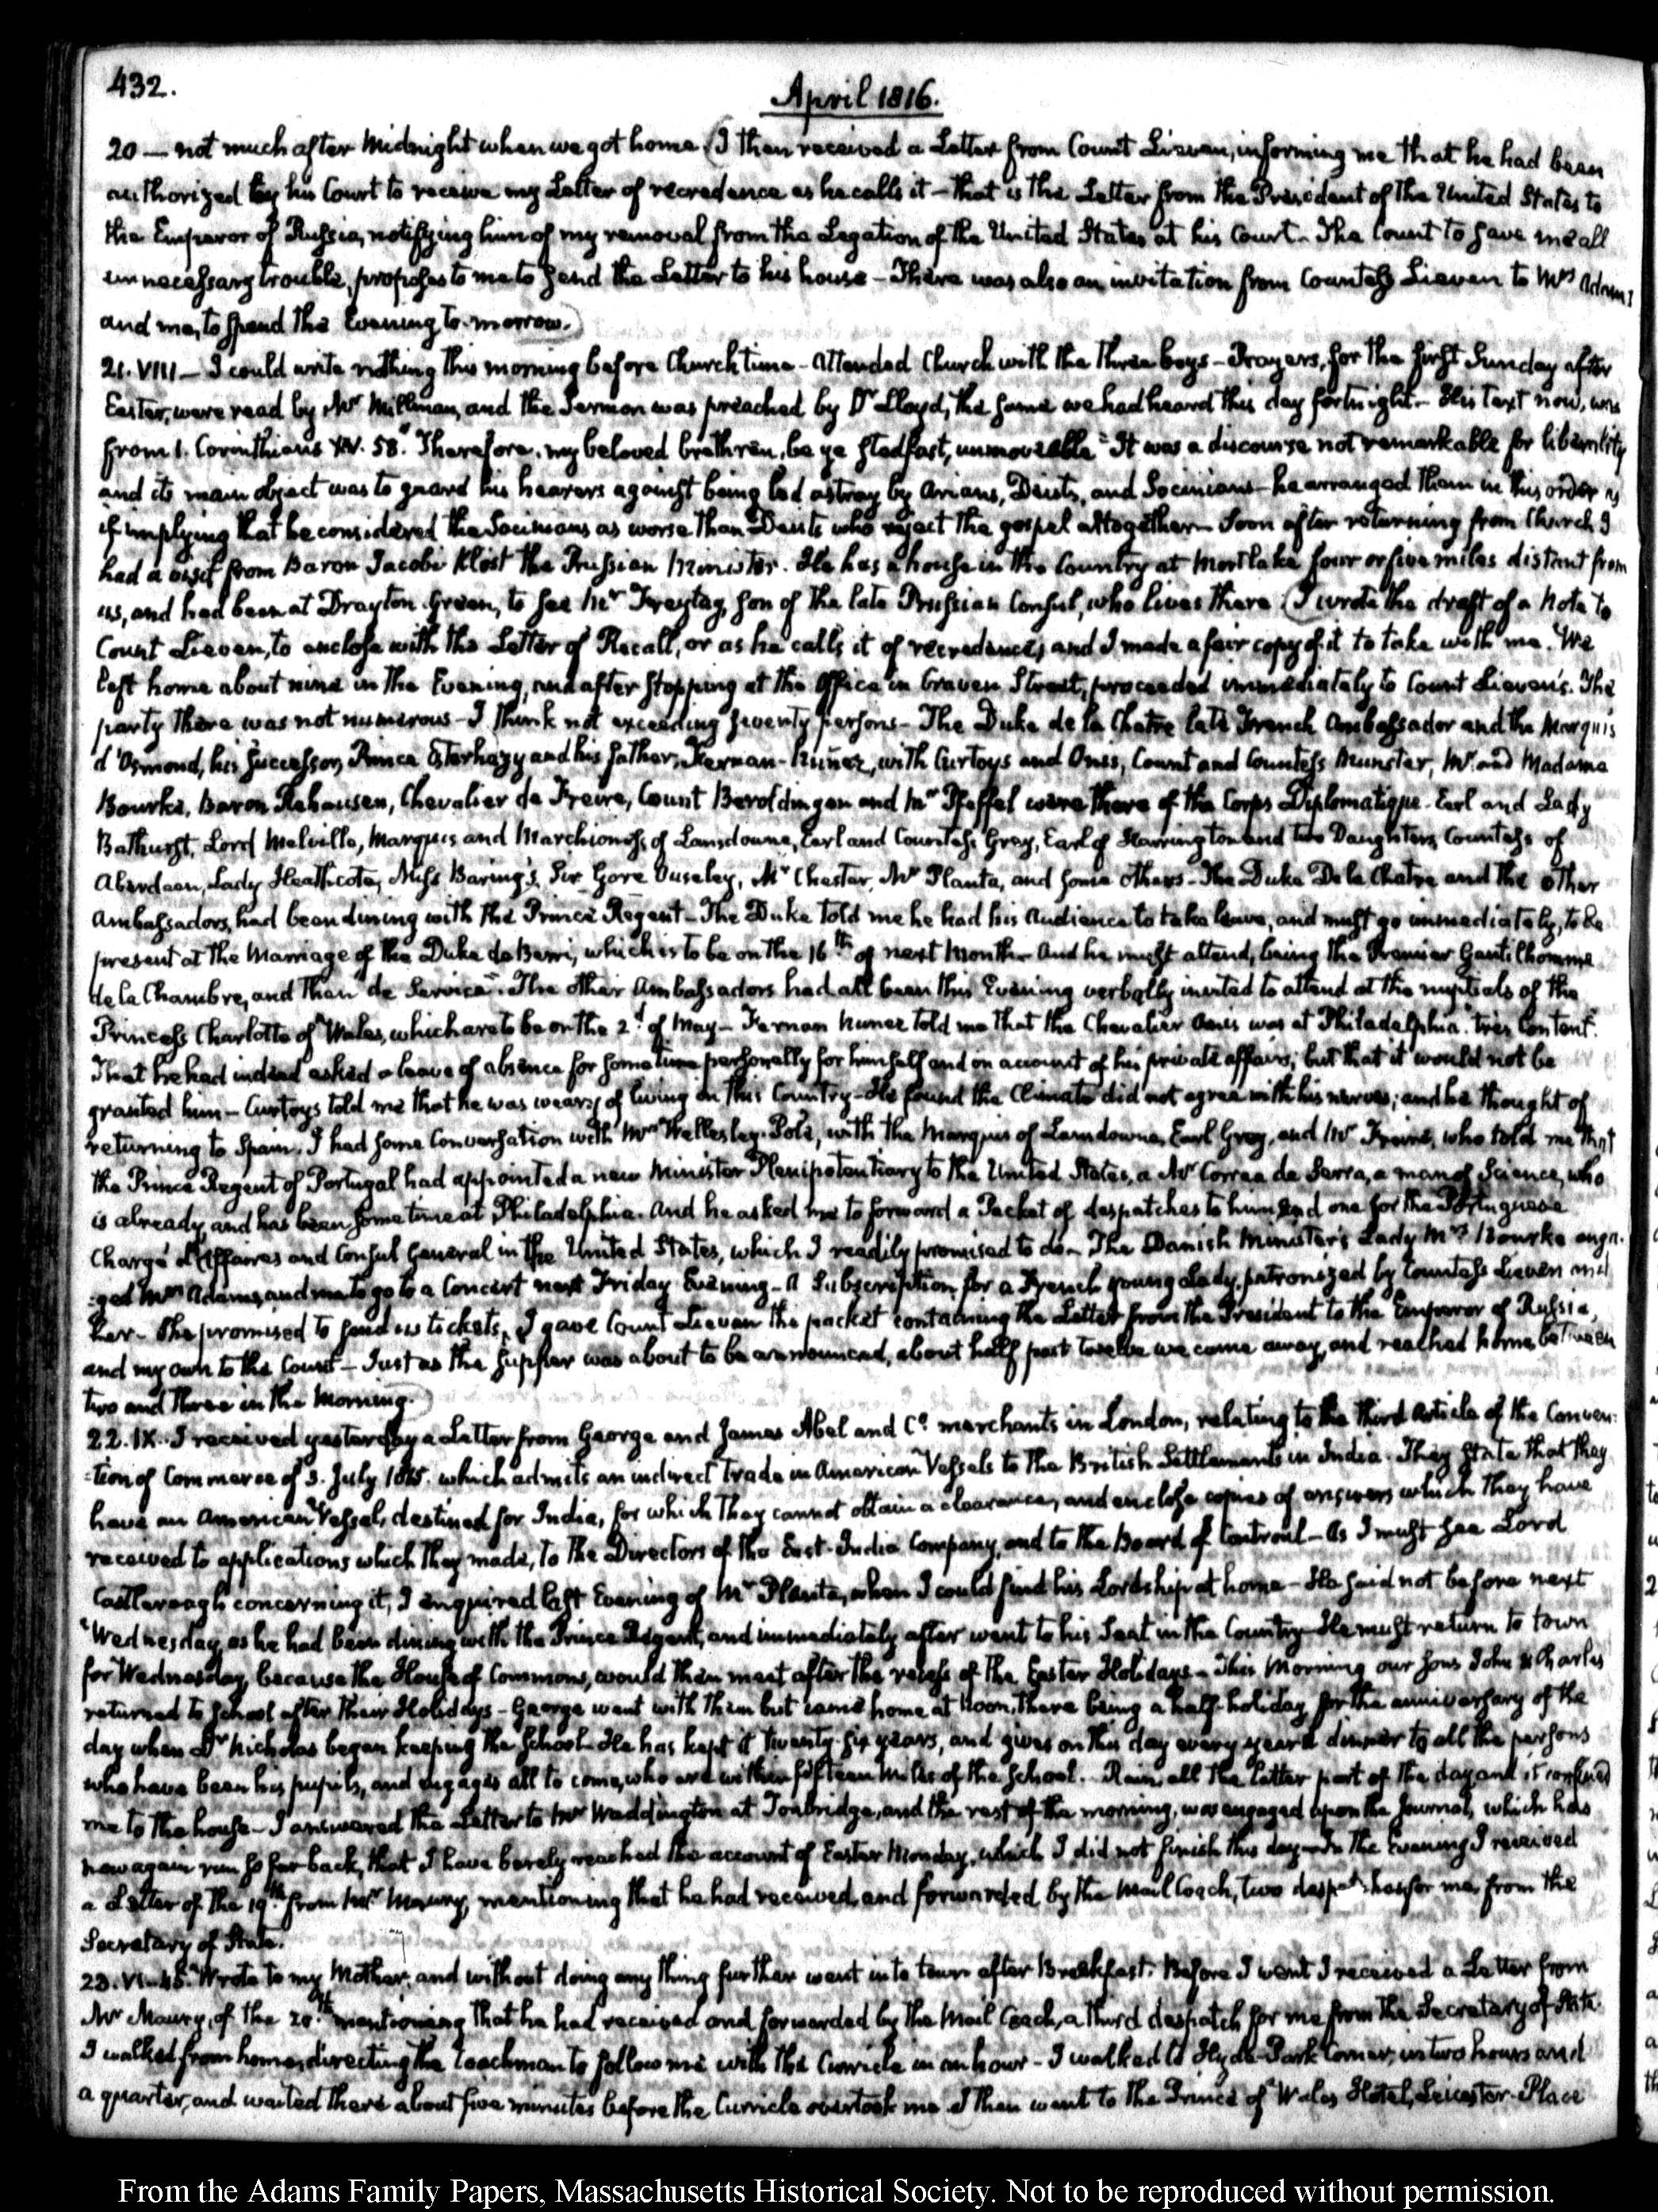 432.
April 1816.
20 — not much after Midnight when we got home. (I then received a Letter from Count Lieven, informing me that he had been
authorized by his Court to receive my Letter of recredence as he calls it — that is the Letter from the President of the United States to
the Emperor of Russia, notifying him of my removal from the Legation of the United States at his Court. The Count to save me all
unnecessary trouble, proposes to me to send the Letter to his house — There was also an invitation from Countess Lieven to Mrs Adams
and me, to spend the Evening to-morrow.)
21. VIII — I could write nothing this morning before Church time — Attended Church with the three boys — Prayers, for the first Sunday after
Easter, were read by Mr Millman, and the Sermon was preached by Dr Lloyd, the same we had heard this day fortnight — His text now, was
from 1. Corinthians XV. 58. "Therefore, my beloved brethren, be ye stedfast, unmoveable" It was a discourse not remarkable for liberality
and its main object was to guard his hearers against being led astray by Arians, Deists, and Socinians — he arranged them in this order as
if implying that he considered the Socinians as worse than Deists who reject the gospel altogether — Soon after returning from Church I
had a visit from Baron Jacobi Klöst the Prussian Minister. He has a house in the Country at Mortlake four or five miles distant from
us, and had been at Drayton Green, to see Mr Freytag, son of the late Prussian Consul, who lives there (I wrote the draft of a Note to
Count Lieven, to enclose with the Letter of Recall, or as he calls it of recredence, and I made a fair copy of it to take with me. We
left home about nine in the Evening, and after stopping at the Office in Craven Street, proceeded immediately to Count Lieven's. The
party there was not numerous — I think not exceeding seventy persons — The Duke de la Chatre late French Ambassador and the Marquis
d'Osmond, his successor, Prince Esterhazy and his father, Fernan-Nuñez, with Curtoys and Onis, Count and Countess Munster, Mr. and Madame
Bourke, Baron Rehausen, Chevalier de Freire, Count Beroldingen and Mr Pfeffel were there of the Corps Diplomatique. Earl and Lady
Bathurst, Lord Melville, Marquis and Marchioness of Lansdowne, Earl and Countess Grey, Earl of Harrington and two Daughters, Countess of
Aberdeen, Lady Heathcote, Miss Baring's, Sir Gore Ouseley, Mr Chester, Mr Planta, and some others — The Duke De la Chatre and the other
Ambassadors, had been dining with the Prince Regent — The Duke told me he had his Audience to take leave, and must go immediately, to be
present at the Marriage of the Duke de Berri, which is to be on the 16th of next Month — And he must attend, being the Premier Gentilhomme
de la Chambre, and then "de Service". The other Ambassadors had all been this Evening verbally invited to attend at the nuptials of the
Princess Charlotte of Wales, which are to be on the 2d of May — Fernan Nunez told me that the Chevalier Onis was at Philadelphia "très content".
That he had indeed asked a leave of absence for some time personally for himself and on account of his private affairs; but that it would not be
granted him — Curtoys told me that he was weary of living in this Country — He found the Climate did not agree with his nerves; and he thought of
returning to Spain. I had some Conversation with Mrs Wellesley-Pole, with the Marquis of Lansdowne, Earl Grey, and Mr Freire, who told me that
the Prince Regent of Portugal had appointed a new Minister Plenipotentiary to the United States, a Mr Correa de Serra, a man of Science, who
is already, and has been sometime at Philadelphia. And he asked me to forward a Packet of despatches to him, and one for the Portuguese
Chargé d'Affaires and Consul General in the United States, which I readily promised to do — The Danish Minister's Lady Mrs Bourke enga-
-ged Mrs Adams, and me to go to a Concert next Friday Evening — A Subscription for a French young Lady, patronized by Countess Lieven and
her — She promised to send us tickets. I gave Count Lieven the packet containing the Letter from the President to the Emperor of Russia,
and my own to the Count — Just as the supper was about to be announced, about half past twelve we came away, and reached home between
two and three in the Morning.)
22. IX. I received yesterday a Letter from George and James Abel and Co. merchants in London, relating to the third Article of the Conven-
-tion of Commerce of 3. July 1815. which admits an indirect Trade in American Vessels to the British Settlements in India. They state that they
have an American Vessel, destined for India, for which they cannot obtain a clearance, and enclose copies of answers which they have
received to applications which they made, to the Directors of the East-India Company, and to the Board of Controul — As I must see Lord
Castlereagh concerning it, I enquired last Evening of Mr Planta, when I could find his Lordship at home — He said not before next
Wednesday, as he had been dining with the Prince Regent, and immediately after went to his Seat in the Country — He must return to town
for Wednesday, because the House of Commons, would then meet after the recess of the Easter Holidays — This Morning our sons John & Charles
returned to School after their Holidays — George went with them but came home at Noon, there being a half-holiday for the anniversary of the
day when Dr Nicholas began keeping the School. He has kept it twenty-six years, and gives on this day every year a dinner to all the persons
who have been his pupils, and engages all to come, who are within fifteen miles of the School. Rain, all the latter part of the day and it confined
me to the house — I answered the Letter to Mr Waddington at Tonbridge, and the rest of the morning, was engaged upon the Journal, which has
now again run so far back, that I have barely reached the account of Easter Monday, which I did not finish this day — In the Evening I received
a Letter of the 19th. from Mr Maury, mentioning that he had received and forwarded by the Mail Coach, two despatches for me, from the
Secretary of State.
23. VI-45. Wrote to my Mother, and without doing any thing further went into town after Breakfast. Before I went I received a Letter from
Mr Maury, of the 20th. mentioning that he had received and forwarded by the Mail Coach, a third despatch for me from the Secretary of State.
I walked from home, directing the Coachman to follow me with the Curricle in an hour — I walked to Hyde-Park Corner, in two hours and
a quarter, and waited there about five minutes before the Curricle overtook me. I then went to the Prince of Wales Hotel, Leicester-Place
From the Adams Family Papers, Massachusetts Historical Society. Not to be reproduced without permission.